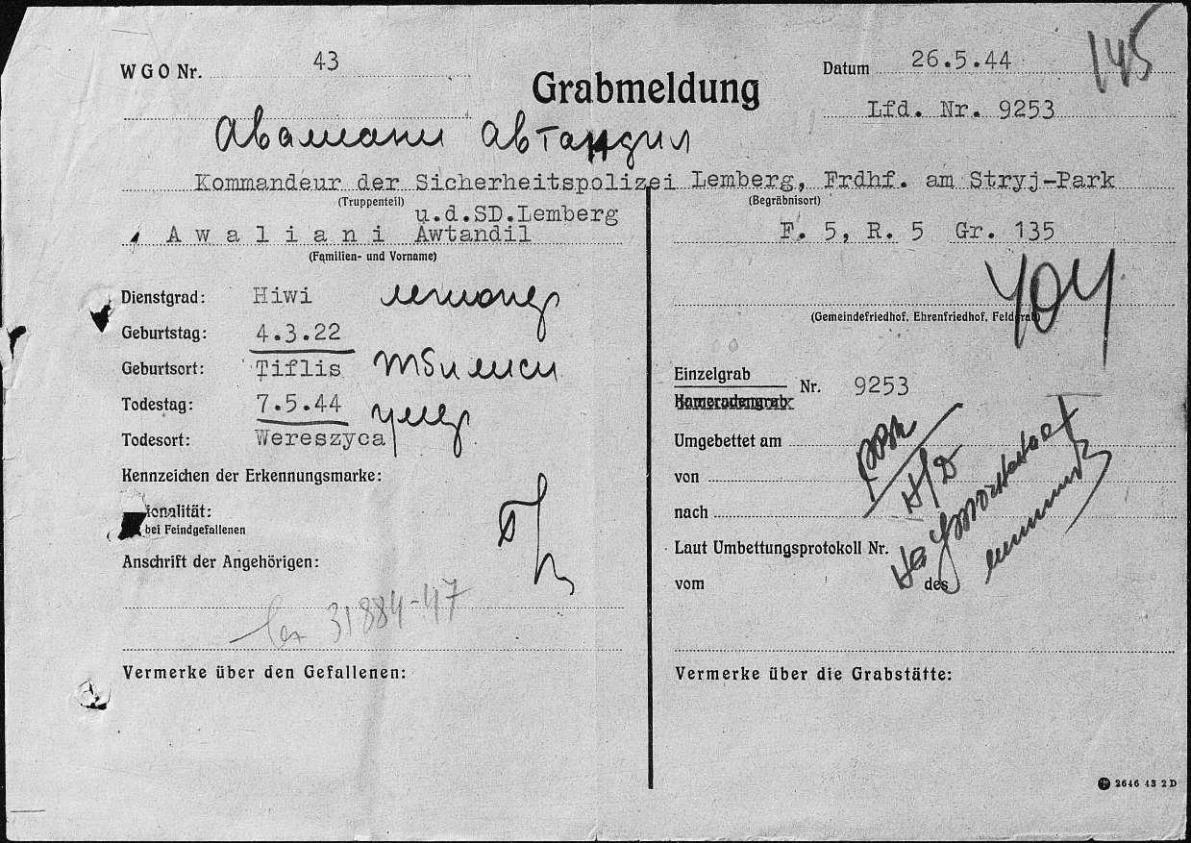 WGO Nr. 43
Grabmeldung
Datum 26.5.44
145
Lfd. Nr. 9253
Авалиани Автандил
Kommandeur der Sicherheitspolizei Lemberg, Frdhf. am Stryj-Park
(Truppenteil) u.d.SD.Lemberg
(Begräbnisort)
Awaliani Awtandil
F. 5, R. 5 Gr. 135
(Familien- und Vorname)
Dienstgrad: Hiwi
Geburtstag: 4.3.22
(Gemeindefriedhof, Ehrenfriedhof, Feldgrab)
Geburtsort: Tiflis Тбилиси
Todestag: 7.5.44
Todesort: Wereszyca
Einzelgrab
Kameradengrab
Nr. 9253
Umgebettet am
von
nach
Laut Umbettungsprotokoll Nr.
vom des
Kennzeichen der Erkennungsmarke:
ionalität:
bei Feindgefallenen
Anschrift der Angehörigen:
31884-47
Vermerke über den Gefallenen:
Vermerke über die Grabstätte:
2646 43 2 D